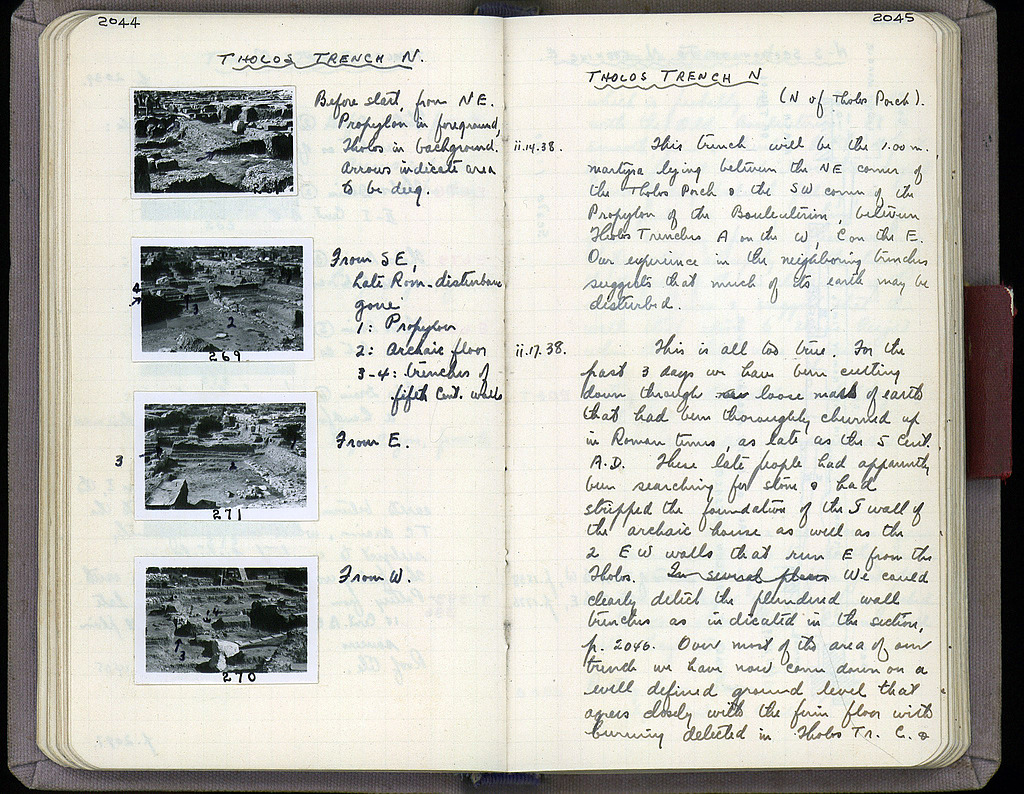 2044
THOLOS TRENCH N.
Before start, from NE.
Propylon in foreground,
Tholos in background.
Arrows indicate area
to be dug.
From SE,
Late Rom. disturbance
gone:
1: Propylon
2: Archaic floor
3-4: trenches of
fifth cent. walls
4
3
2
269
From E.
3
271
From W
3
270
2045
THOLOS TRENCH N
(N of Tholos Porch).
ii.14.38. This trench will be the 1.00 m.
martyra lying between the NE corner of
the Tholos Porch & the SW corner of the
Propylon of the Bouleuterion, between
Tholos Trenches A on the W, C on the E.
Our experience in the neighboring trenches
suggests that much of its earth may be
disturbed.
ii.17.38. This is all too true. For the
past 3 days we have been cutting
down through loose mass of earth
that had been thoroughly churned up
in Roman times, as late as the 5 cent.
A.D. These late people had apparently
been searching for stone & had
stripped the foundation of the S wall of
the archaic house as well as the
2 EW walls that run E from the
Tholos. In several places We could
clearly detect the plundered wall
trenches as indicated in the section,
p. 2046. Over most of the area of our
trench we have now come down on a
well defined ground level that
agrees closely with the firm floor with
burning detected in Tholos Tr. C. &